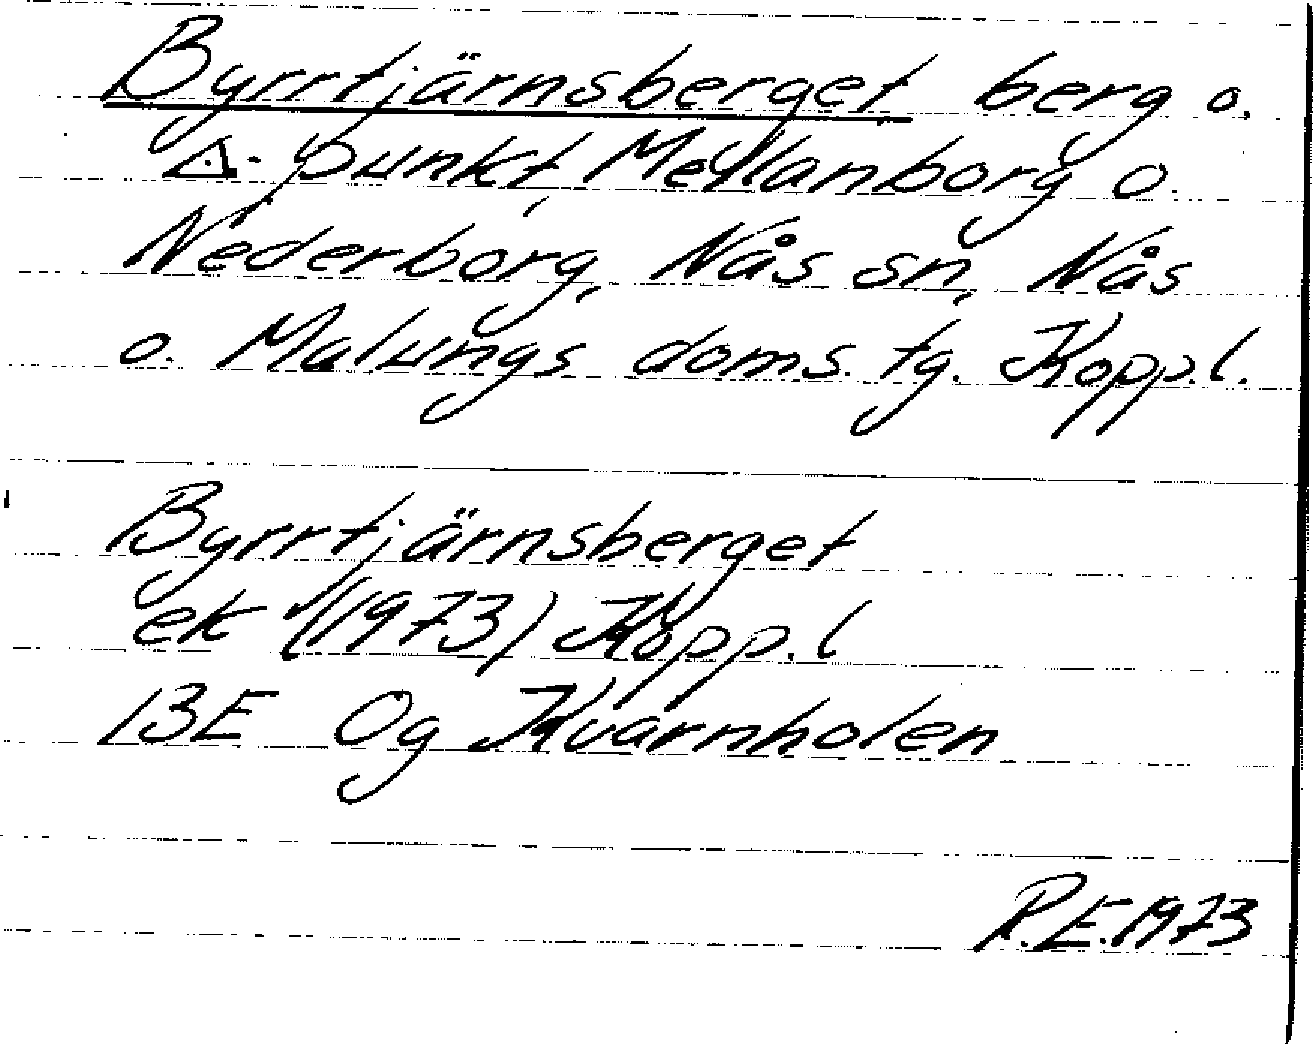 Byrrtjärnsberget, berg o.
△-punkt, Mellanborg o.
Nederborg, Nås sn, Nås
o. Malungs doms. tg. Kopp.l.
Byrrtjärnsberget
ek (1973) Kopp.l
13E 0g Kvarnholen
R.E.1973